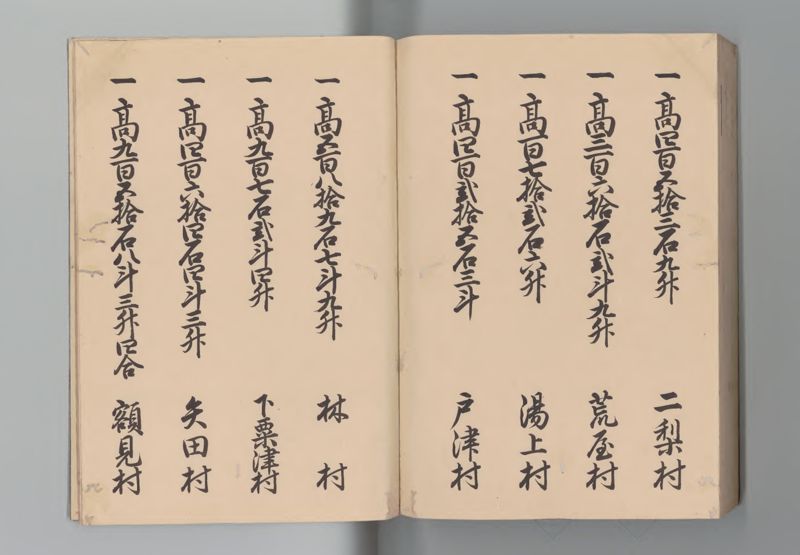 一高四百五拾三石九升 二梨村
一高三百六拾石弐斗九升 荒屋村
一高百七拾弐石六升 湯上村
一高四百弐拾五石三斗 戸津村
一高五百八拾九石七斗九升 林村
一高九百七石弐斗四升 下粟津村
一高四百六拾四石四斗三升 矢田村
一高九百五拾石八斗三升四合 額見村